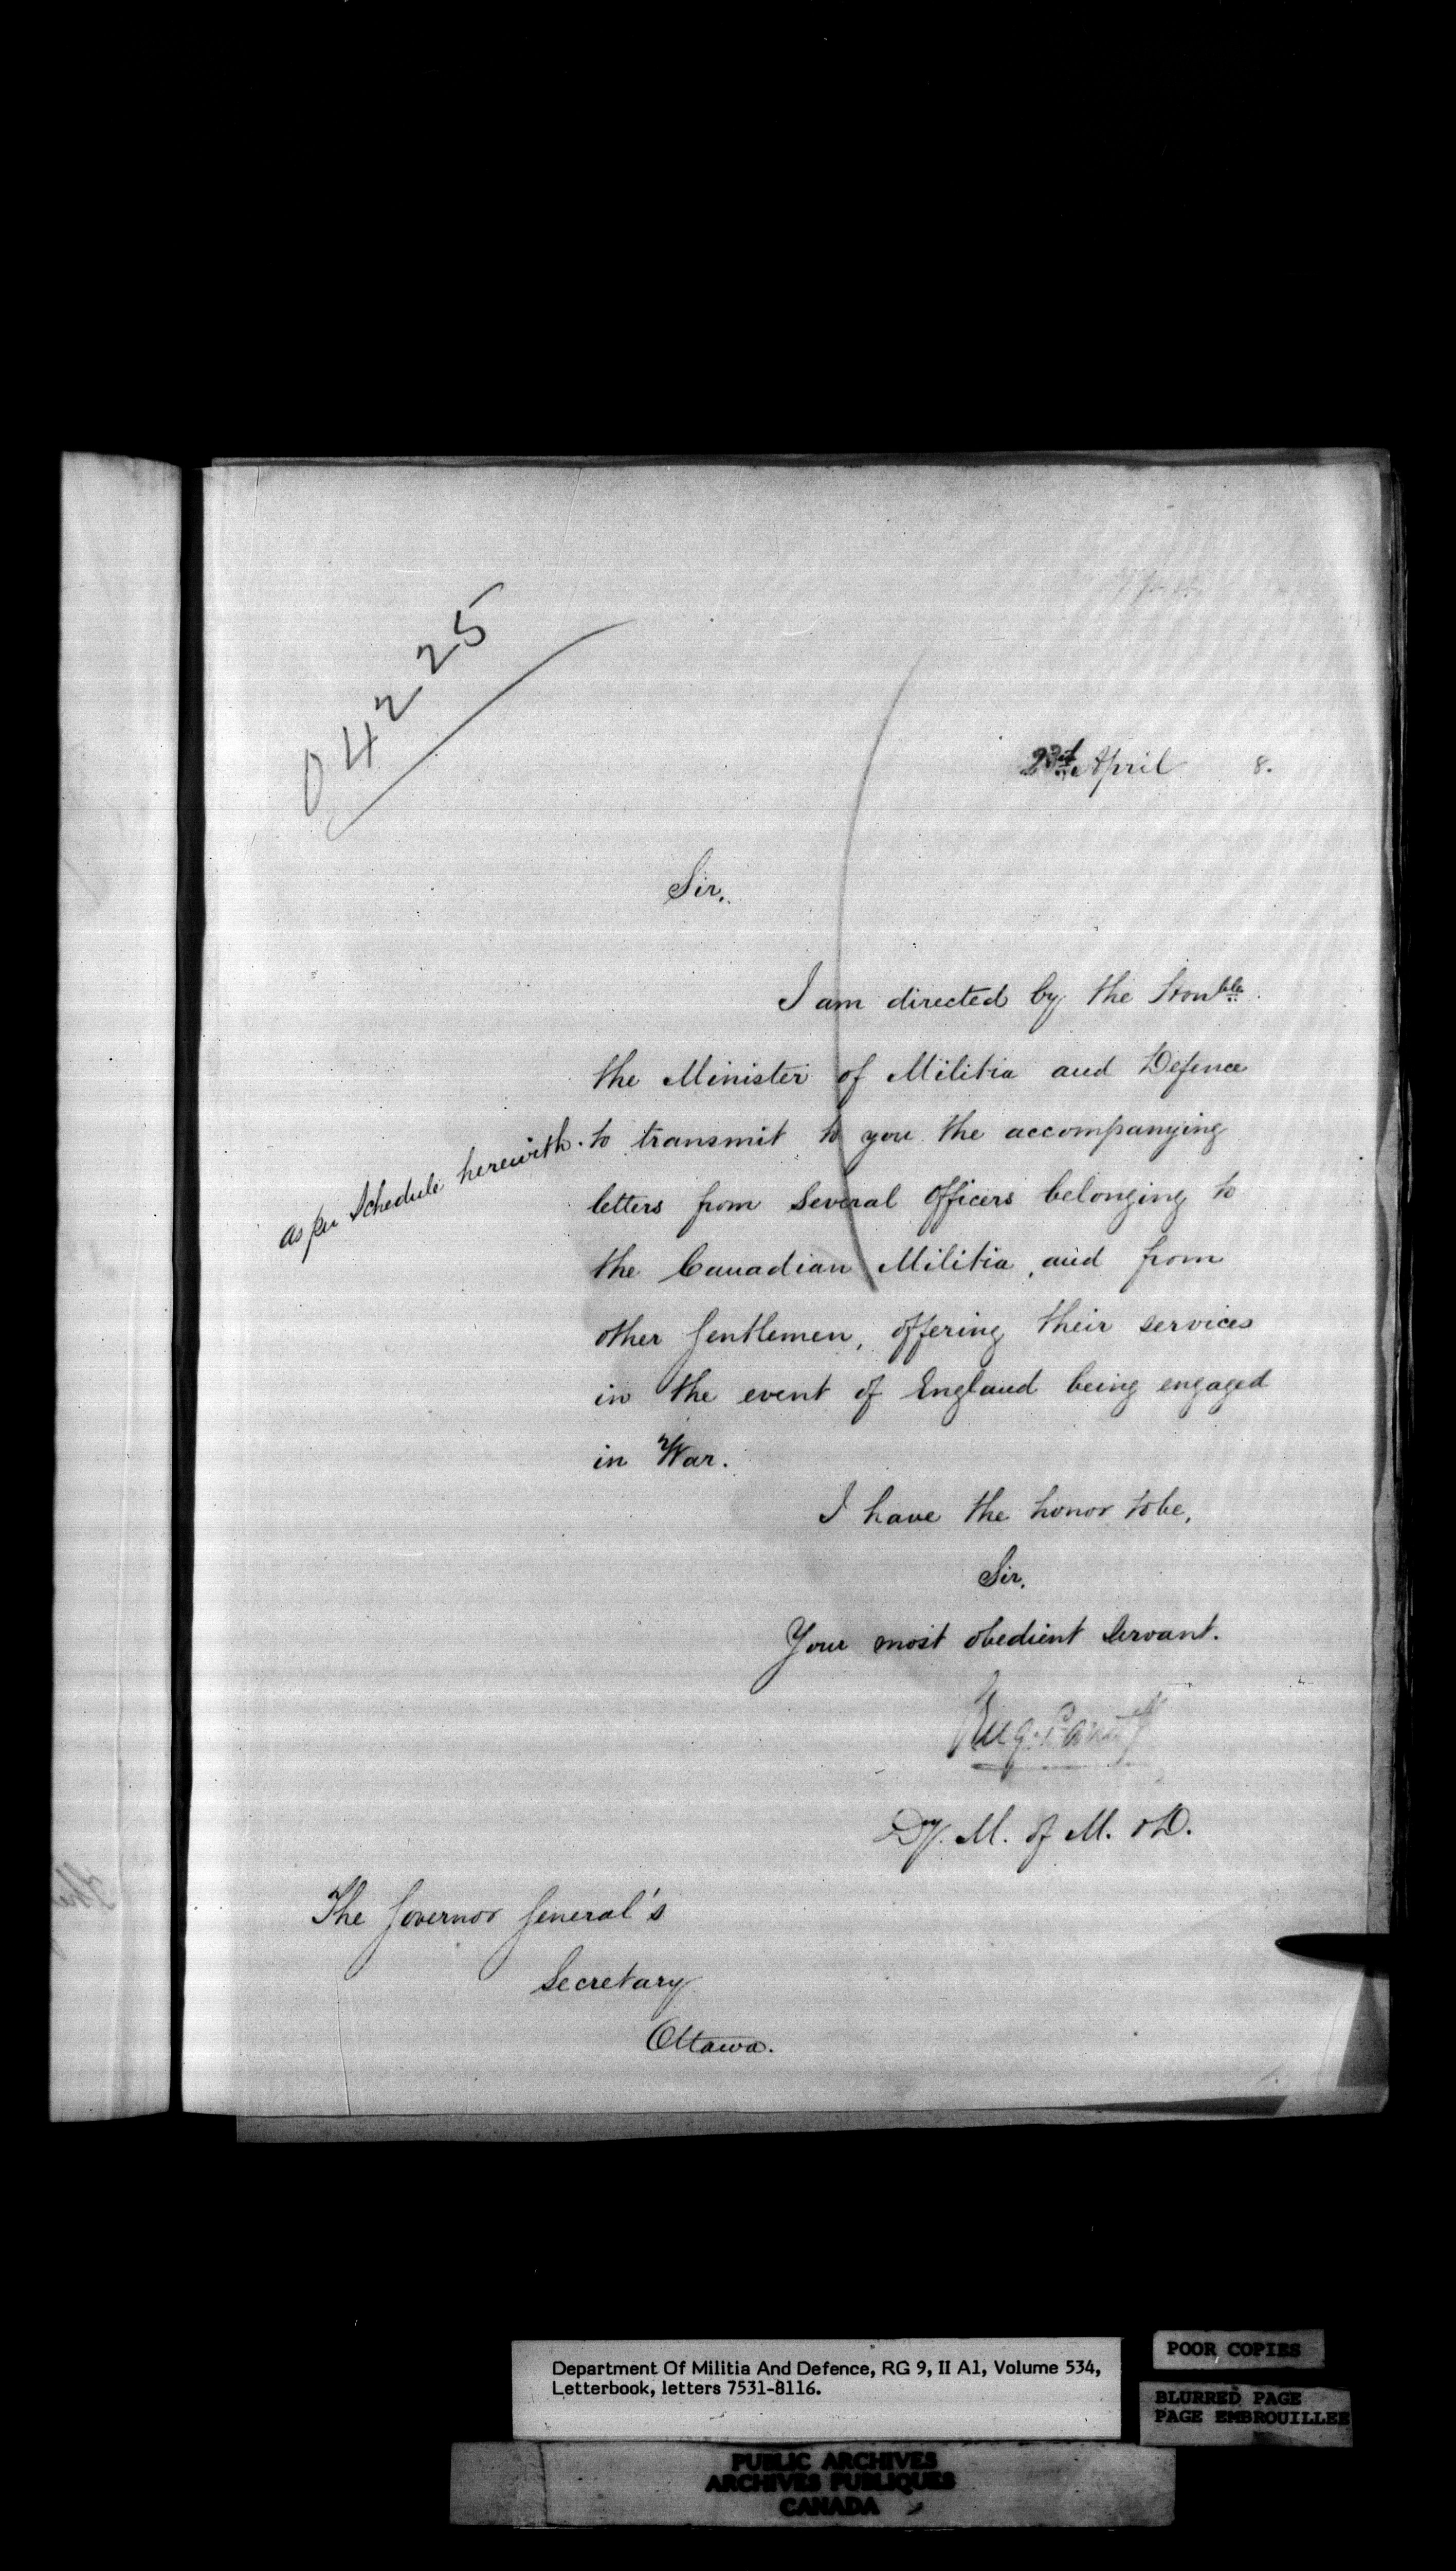 04225
23rd April 8.
Sir,
I am directed by the Honble
the Minister of Militia and Defence
as per Schedule herewith. to transmit to you the accompanying
letters from Several Officers belonging to
the Canadian Militia, and from
other Gentlemen, offering their services
in the event of England being engaged
in War.
I have the honor to be,
Sir,
Your most obedient Servant.
Eug. Panet
Dy. M. of M. & D.
The Governor General's
Secretary
Ottawa.
Department Of Militia And Defence, RG 9, II A1, Volume 534,
Letterbook, letters 7531-8116.
POOR COPIES
BLURRED PAGE
PAGE EMBROUILLEE
PUBLIC ARCHIVES
ARCHIVES PUBLIQUES
CANADA